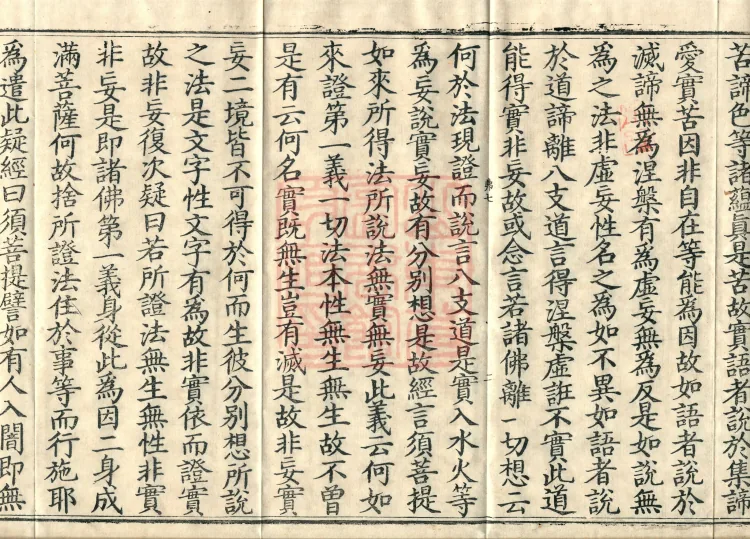 苦諦色等諸蘊真是苦故實語者說於集諦
愛實苦因非自在等能為因故如語者說於
滅諦無為涅槃有為虛妄無為反是如說無
為之法非虛妄性名之為如不異如語者說
於道諦離八支道言得涅槃虛誑不實此道
能得實非妄故或念言若諸佛離一切想云
第七
二
何於法現證而說言八支道是實入水火等
為妄說實妄故有分別想是故經言須菩提
如來所得法所說法無實無妄此義云何如
來證第一義一切法本性無生無生故不曾
是有云何名實既無生豈有滅是故非妄實
妄二境皆不可得於何而生彼分別想所說
之法是文字性文字有為故非實依而證實
故非妄復次疑曰若所證法無生無性非實
非妄是即諸佛第一義身從此為因二身成
滿菩薩何故捨所證法住於事等而行施耶
為遣此疑經曰須菩提譬如有人入闇即無